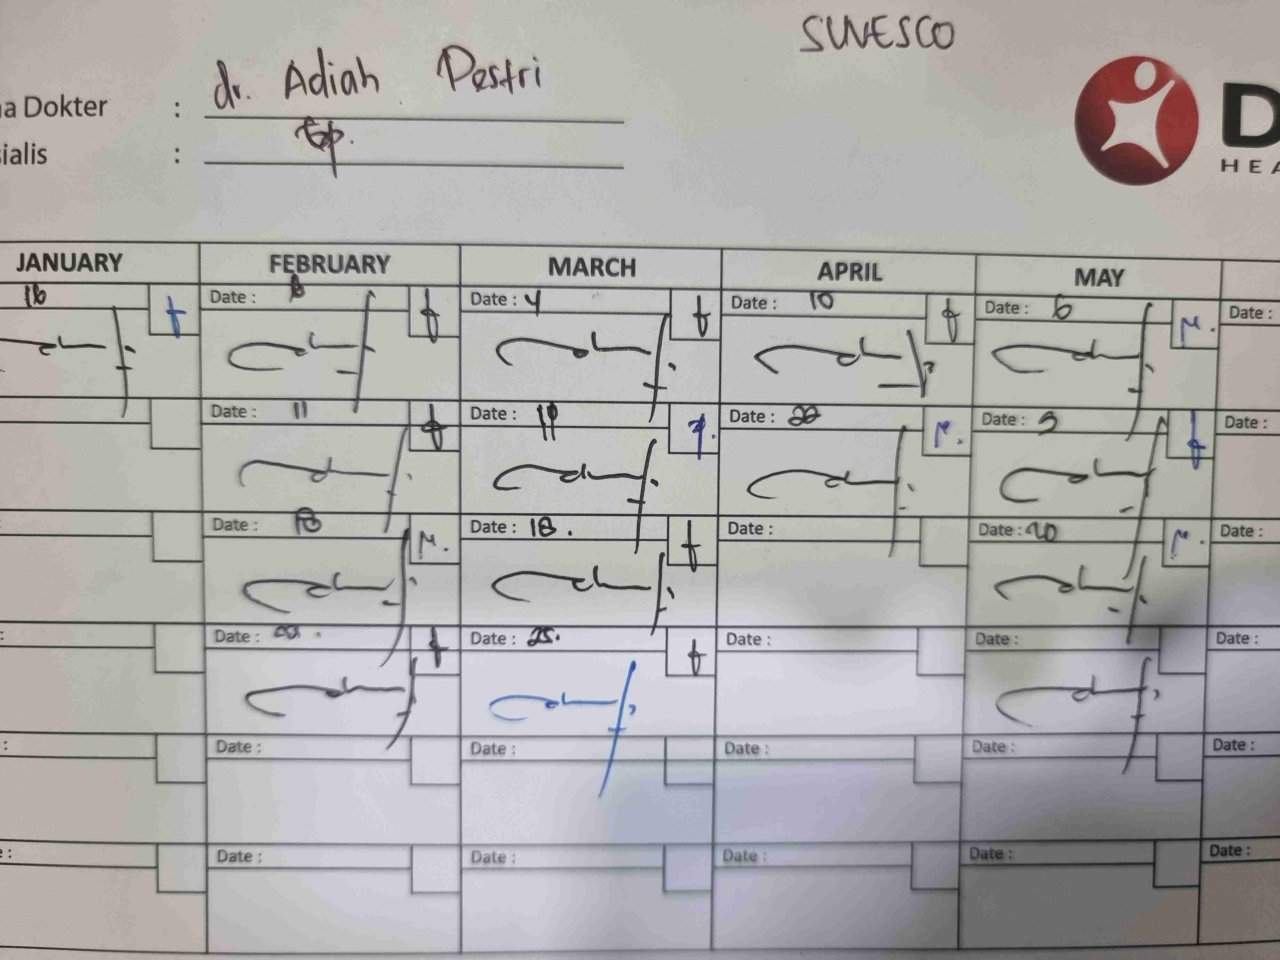 SUNESCO
a Dokter : dr. Adiah Pestri
ialis : Gp.
D
HEA
JANUARY FEBRUARY MARCH APRIL MAY
16 Date : 8 Date : 4 Date : 10 Date : 6 Date :
Date : 11 Date : 11 Date : 22 Date : Date :
Date : 18 Date : 18. Date : Date : 20 Date :
: Date : Date : 25. Date : Date : Date :
: Date : Date : Date : Date : Date :
e : Date : Date : Date : Date : Date :